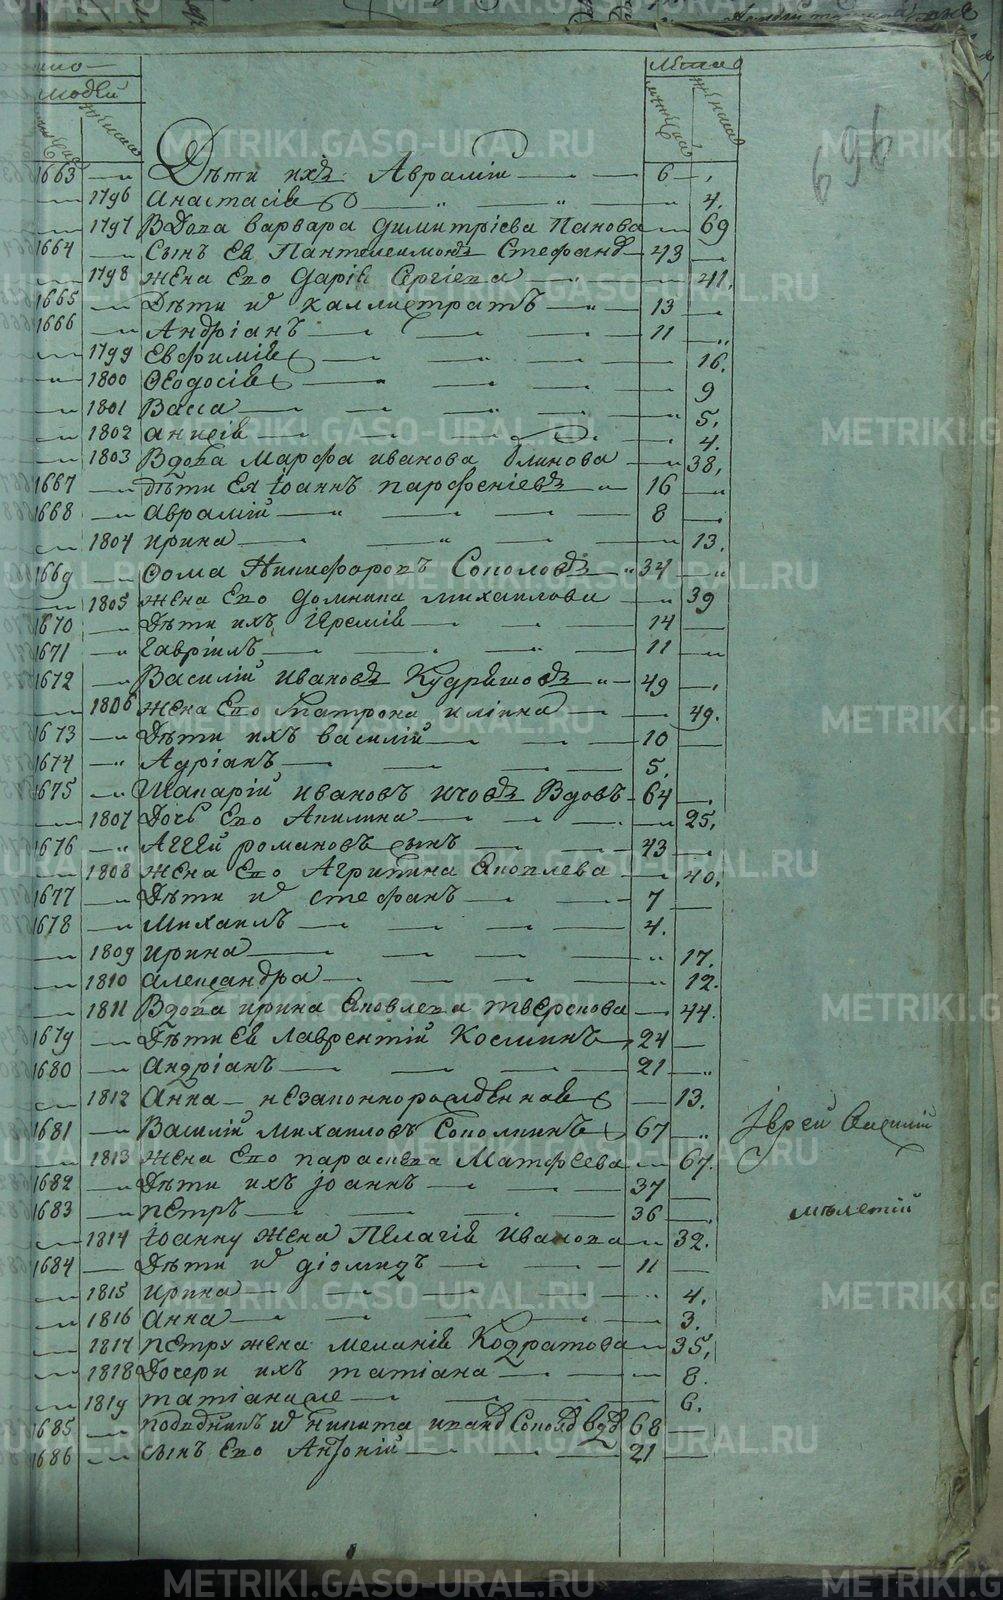 людей
лѣта
696
1663 Дѣти ихъ Авраамій 6
1796 Анастасія 4.
1797 Вдова Варвара Димитріева Панова 69
1664 Сынъ ея Пантелеимонъ Стефановъ 43
1798 жена его Дарія Сергіева 41.
1665 Дѣти их Каллистратъ 13
1666 Андріанъ 11
1799 Евфимія 16.
1800 Ѳеодосія 9
1801 Васса 5,
1802 Анисія 4.
1803 Вдова Марфа Иванова Блинова 38,
1667 Дѣти ея Іоаннъ Парфеніевъ 16
1668 Авраамій 8
1804 Ирина 13.
1669 Ѳома Никифоровъ Соколовъ 34
1805 жена его Домника Михаилова 39
1670 Дѣти ихъ Іеремія 14
1671 Гавріилъ 11
1672 Василій Ивановъ Кудряшовъ 49
1806 жена его Матрона Иліина 49.
1673 Дѣти ихъ Василій 10
1674 Адріанъ 5.
1675 Макарій Ивановъ Вдовъ 64
1807 Дочь его Акилина 25,
1676 Аггей Романовъ сынъ 43
1808 жена его Агрипина Яковлева 40,
1677 Дѣти их Стефанъ 7
1678 Михаилъ 4.
1809 Ирина 17.
1810 Александра 12.
1811 Вдова Ирина Яковлева 44.
1679 Дѣти ея Лаврентій Косминъ 24
1680 Андріанъ 21
1812 Анна незаконнорожденная 13.
1681 Василій Михаиловъ 67
Іерей Василій
1813 жена его Параскева Матфеева 67.
1682 Дѣти ихъ Іоаннъ 37
1683 Петръ 36
1814 Іоанну жена Пелагія Иванова 32.
1684 Дѣти их Діомидъ 11
1815 Ирина 4.
1816 Анна 3.
1817 Петру жена Меланія Кодратова 35,
1818 Дочери ихъ Татіана 8.
1819 Татіана же 6.
1685 их Никита Ивановъ Вдовъ 68
1686 Сынъ его Антоній 21
METRIKI.GASO-URAL.RU